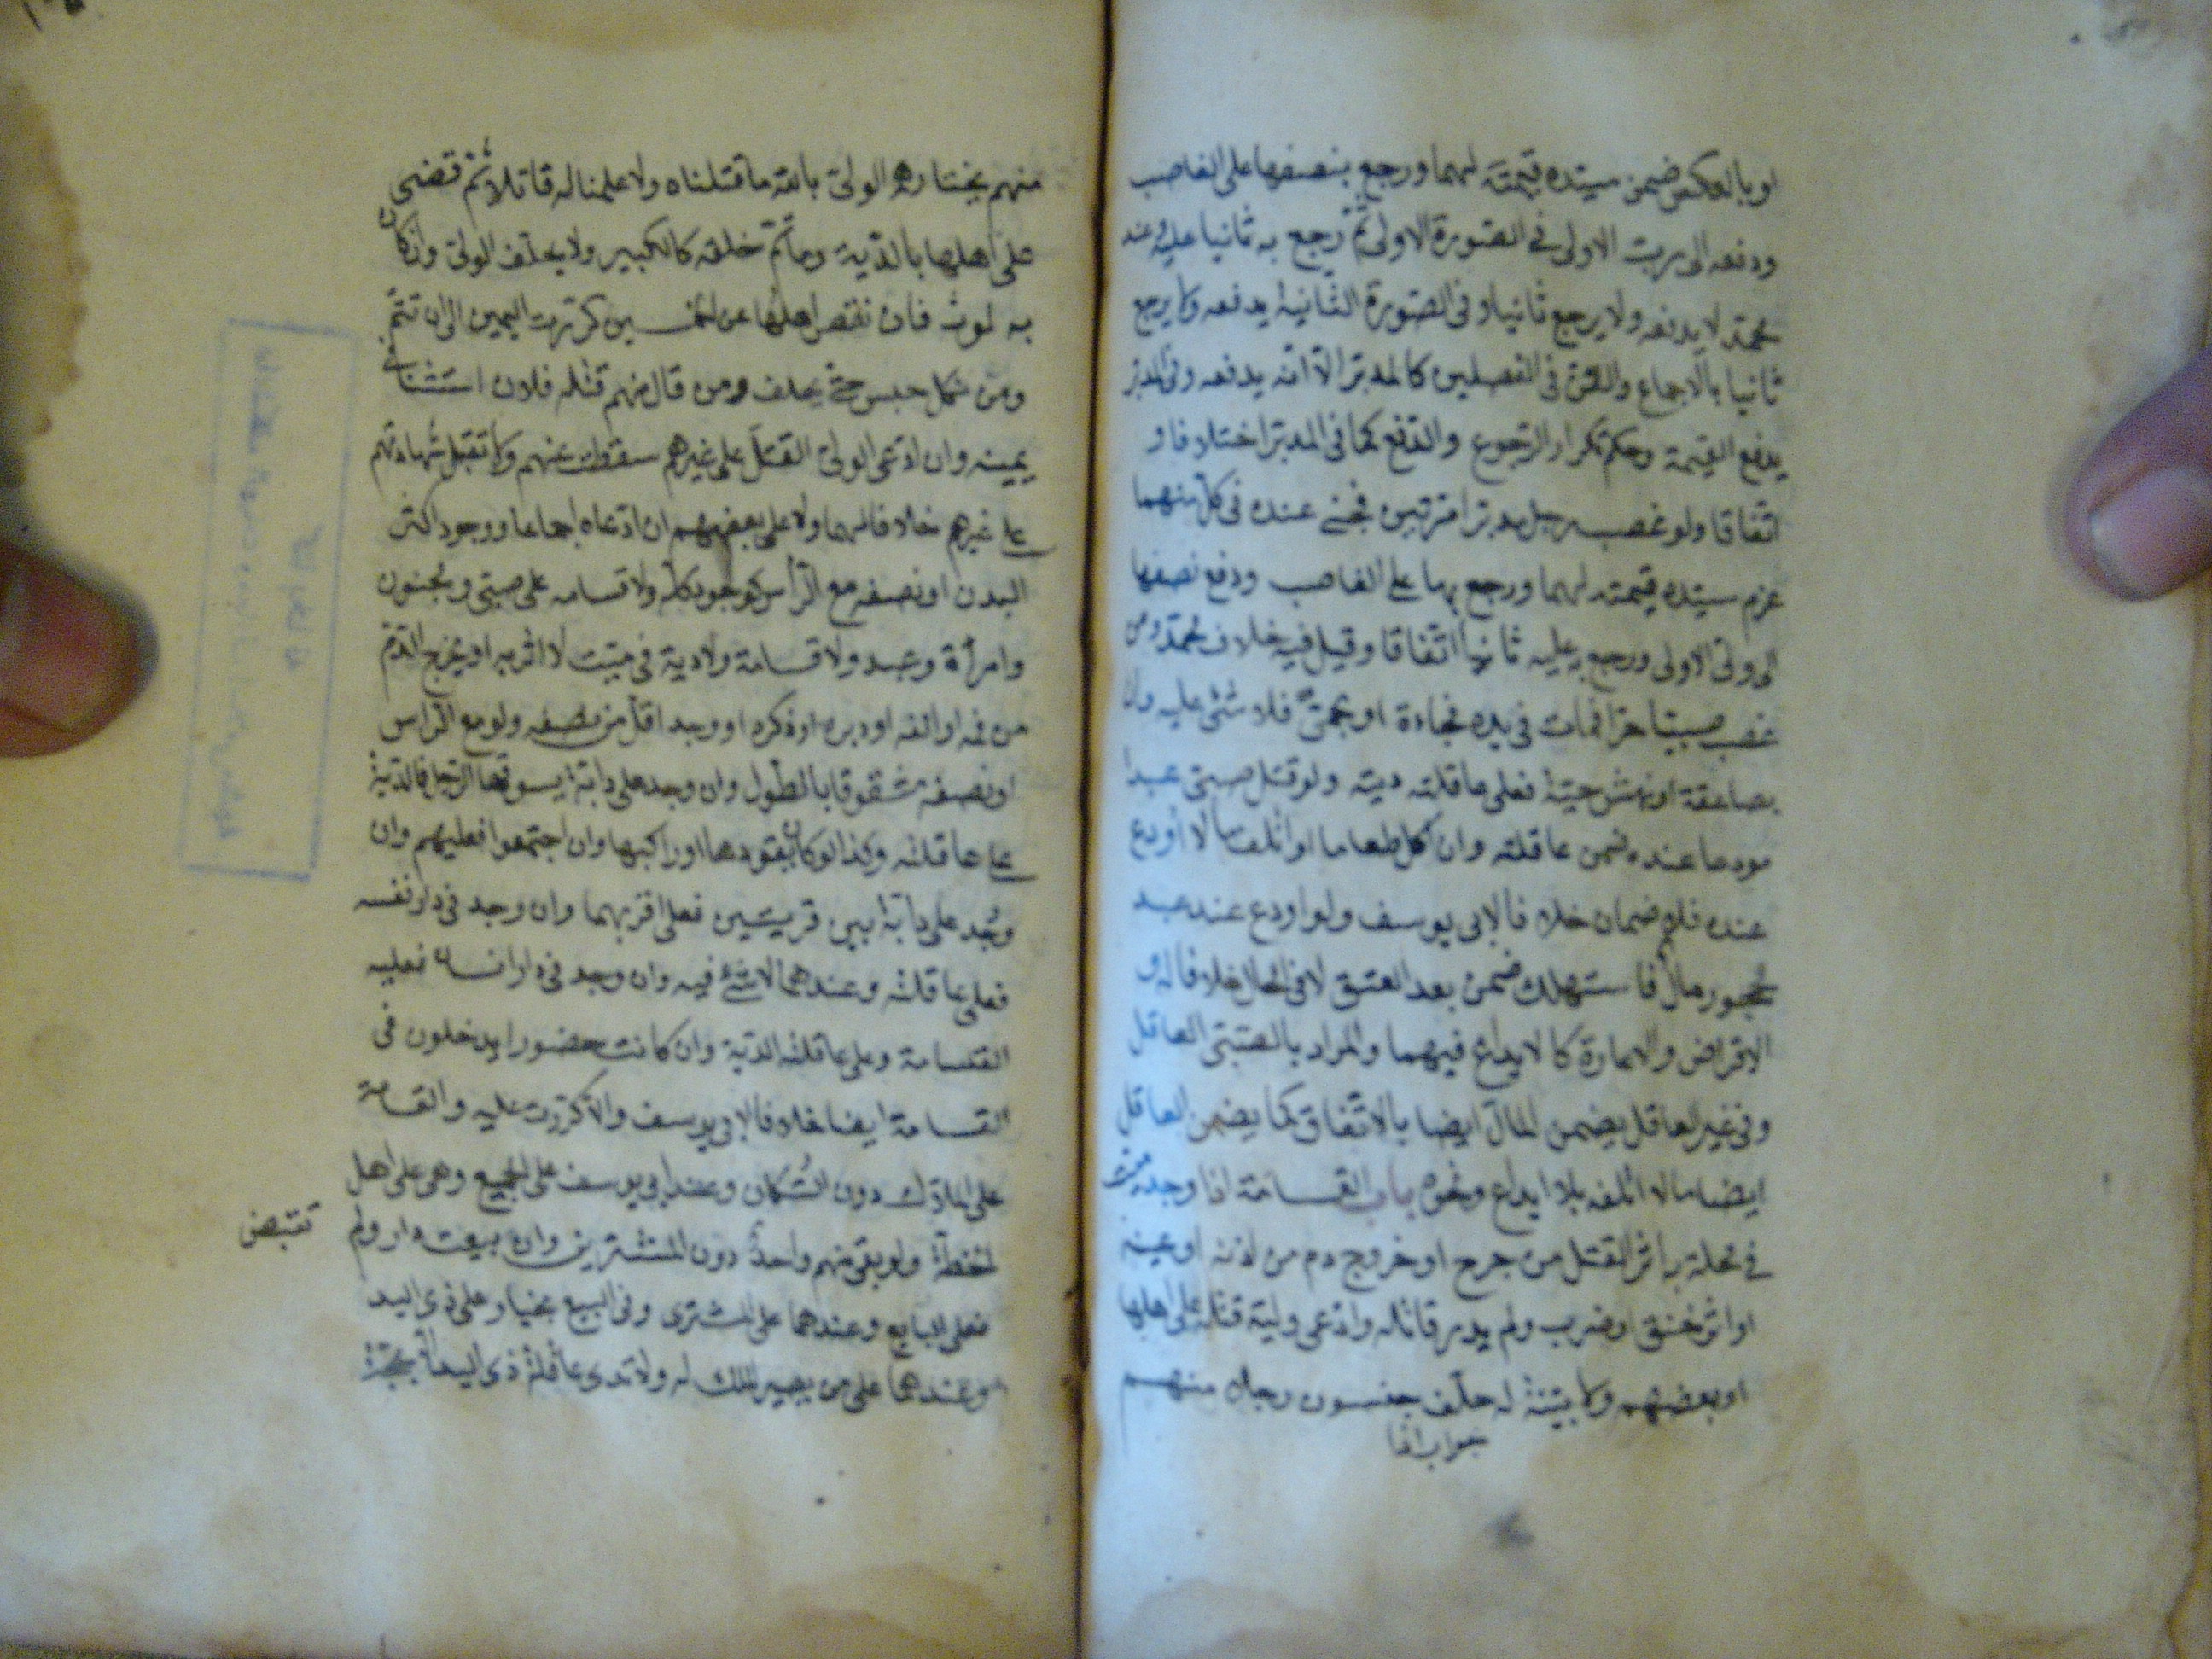 او بالعكس ضمن سيّده قيمته لهما ورجع بنصفها على الغاصب
ودفعه الى ربّ الاولى في الصّورة الاولى ثمّ رجع به ثانيا عليه وعند
محمّد لا يدفعه ولا يرجع ثانيا وفي الصّورة الثّانية يدفعه ولا يرجع
ثانيا بالاجماع والقنّ في الفصلين كالمدبّر الّا انّه يدفعه وفي المدبّر
يدفع القيمة وحكم تكرار الرّجوع والدّفع كما في المدبّر اختلافا و
اتّفاقا ولو غصب رجل مدبّرا مرّتين فجنى عنده في كلّ منهما
غرم سيّده قيمته لهما ورجع بها على الغاصب ودفع نصفها
الى وليّ الاولى ورجع به عليه ثانيا اتّفاقا وقيل فيه خلاف محمّد ومن
غصب صبيّا حرّا فمات في يده فجاءة او بحمّى فلا شئ عليه وان
بصاعقة او نهش حيّة فعلى عاقلته ديته ولو قتل صبيّ عبدا
مودعا عنده ضمن عاقلته وان اكل طعاما او اتلف مالا اودع
عنده فلا ضمان خلافا لابي يوسف ولو اودع عند عبد
محجور مال فاستهلك ضمن بعد العتق لا في الحال خلافا له و
الاقراض والاعارة كالايداع فيهما والمراد بالصّبيّ العاقل
وفي غير العاقل يضمن المال ايضا بالاتّفاق كما يضمن العاقل
ايضا مالا اتلفه بلا ايداع ونحوه باب القسامة اذا وجد ميّت
في محلّة به اثر القتل من جرح او خروج دم من اذنه او عينه
او اثر خنق او ضرب ولم يدر قاتله وادّعى وليّه قتله على اهلها
او بعضهم ولا بيّنة له حلّف خمسون رجلا منهم
جواب اذا
منهم يختارهم الوليّ بالله ما قتلناه ولا علمنا له قاتلا ثمّ قضى
على اهلها بالدّية وما تمّ خلقه كالكبير ولا يحلّف الوليّ وان كان
به لوث فان نقص اهلها عن الخمسين كرّرت اليمين الى ان تتمّ
ومن نكل حبس حتى يحلف ومن قال منهم قتله فلان استثناه في
يمينه وان ادّعى الوليّ القتل على غيرهم سقطت عنهم ولا تقبل شهادتهم
على غيرهم خلافا لهما ولا على بعضهم ان ادّعاه اجماعا ووجود اكثر
البدن او نصفه مع الرّأس كوجود كلّه ولا قسامة على صبيّ ومجنون
وامرأة وعبد ولا قسامة ولا دية في ميّت لا اثر به او يخرج الدّم
من فمه او انفه او دبره او ذكره او وجد اقلّ من نصفه ولو مع الرّاس
او نصفه مشقوقا بالطّول وان وجد على دابّة يسوقها الرّجل فالدّية
على عاقلته وكذا لو كان يقودها او راكبها وان اجتمعوا فعليهم وان
وجد على دابّة بين قريتين فعلى اقربهما وان وجد في دار نفسه
فعلى عاقلته وعندهما لا شئ فيه وان وجد في دار انسان فعليه
القسامة وعلى عاقلته الدّية وان كانت حضورا يدخلون في
القسامة ايضا خلافا لابي يوسف والّا كرّرت عليه والقسامة
على الملّاك دون السّكّان وعند ابي يوسف على الجميع وهي على اهل
الخطّة ولو بقي منهم واحد دون المشترين وان بيعت دار ولم
تقبض
فعلى البايع وعندهما على المشترى وفي البيع بخيار على ذى اليد
وعندهما على من يصير الملك له ولا تدى عاقلة ذى اليد الّا بحجّة